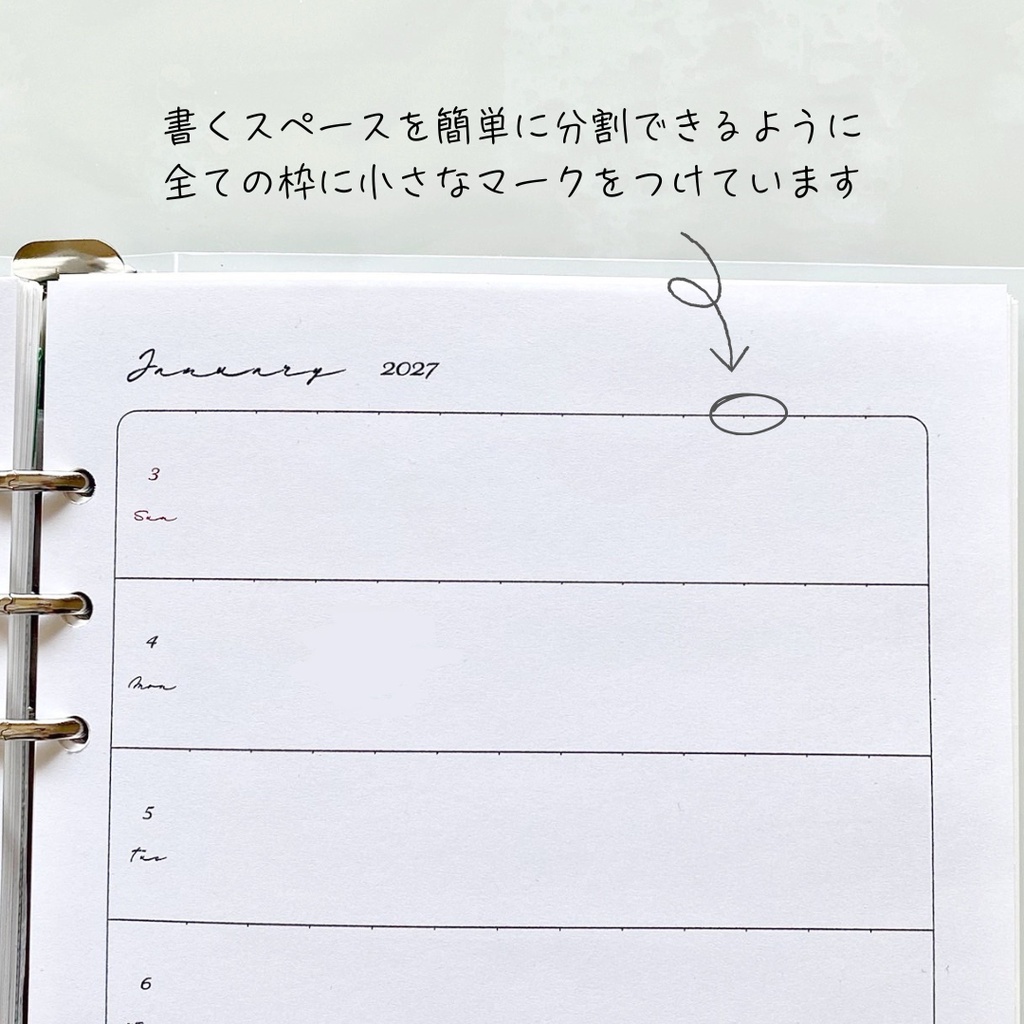 書くスペースを簡単に分割できるように
全ての枠に小さなマークをつけています
January 2027
3
Sun
4
Mon
5
Tue
6